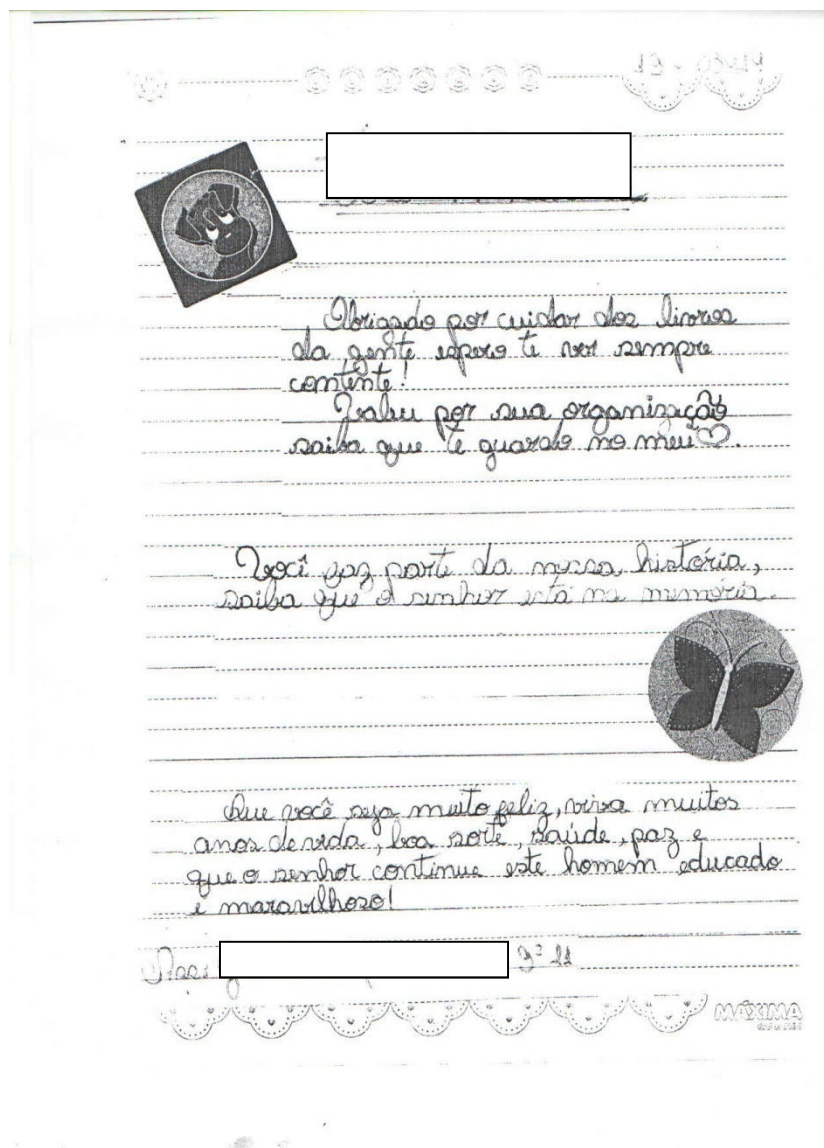 Obrigado por cuidar dos livros
da gente espero te ver sempre
contente!
Valeu por sua organização
saiba que te guardo no meu ♡.
Você faz parte da nossa história,
saiba que o senhor está na memória.
Que você seja muito feliz, viva muitos
anos de vida, boa sorte, saúde, paz e
que o senhor continue este homem educado
e maravilhoso!
MÁXIMA